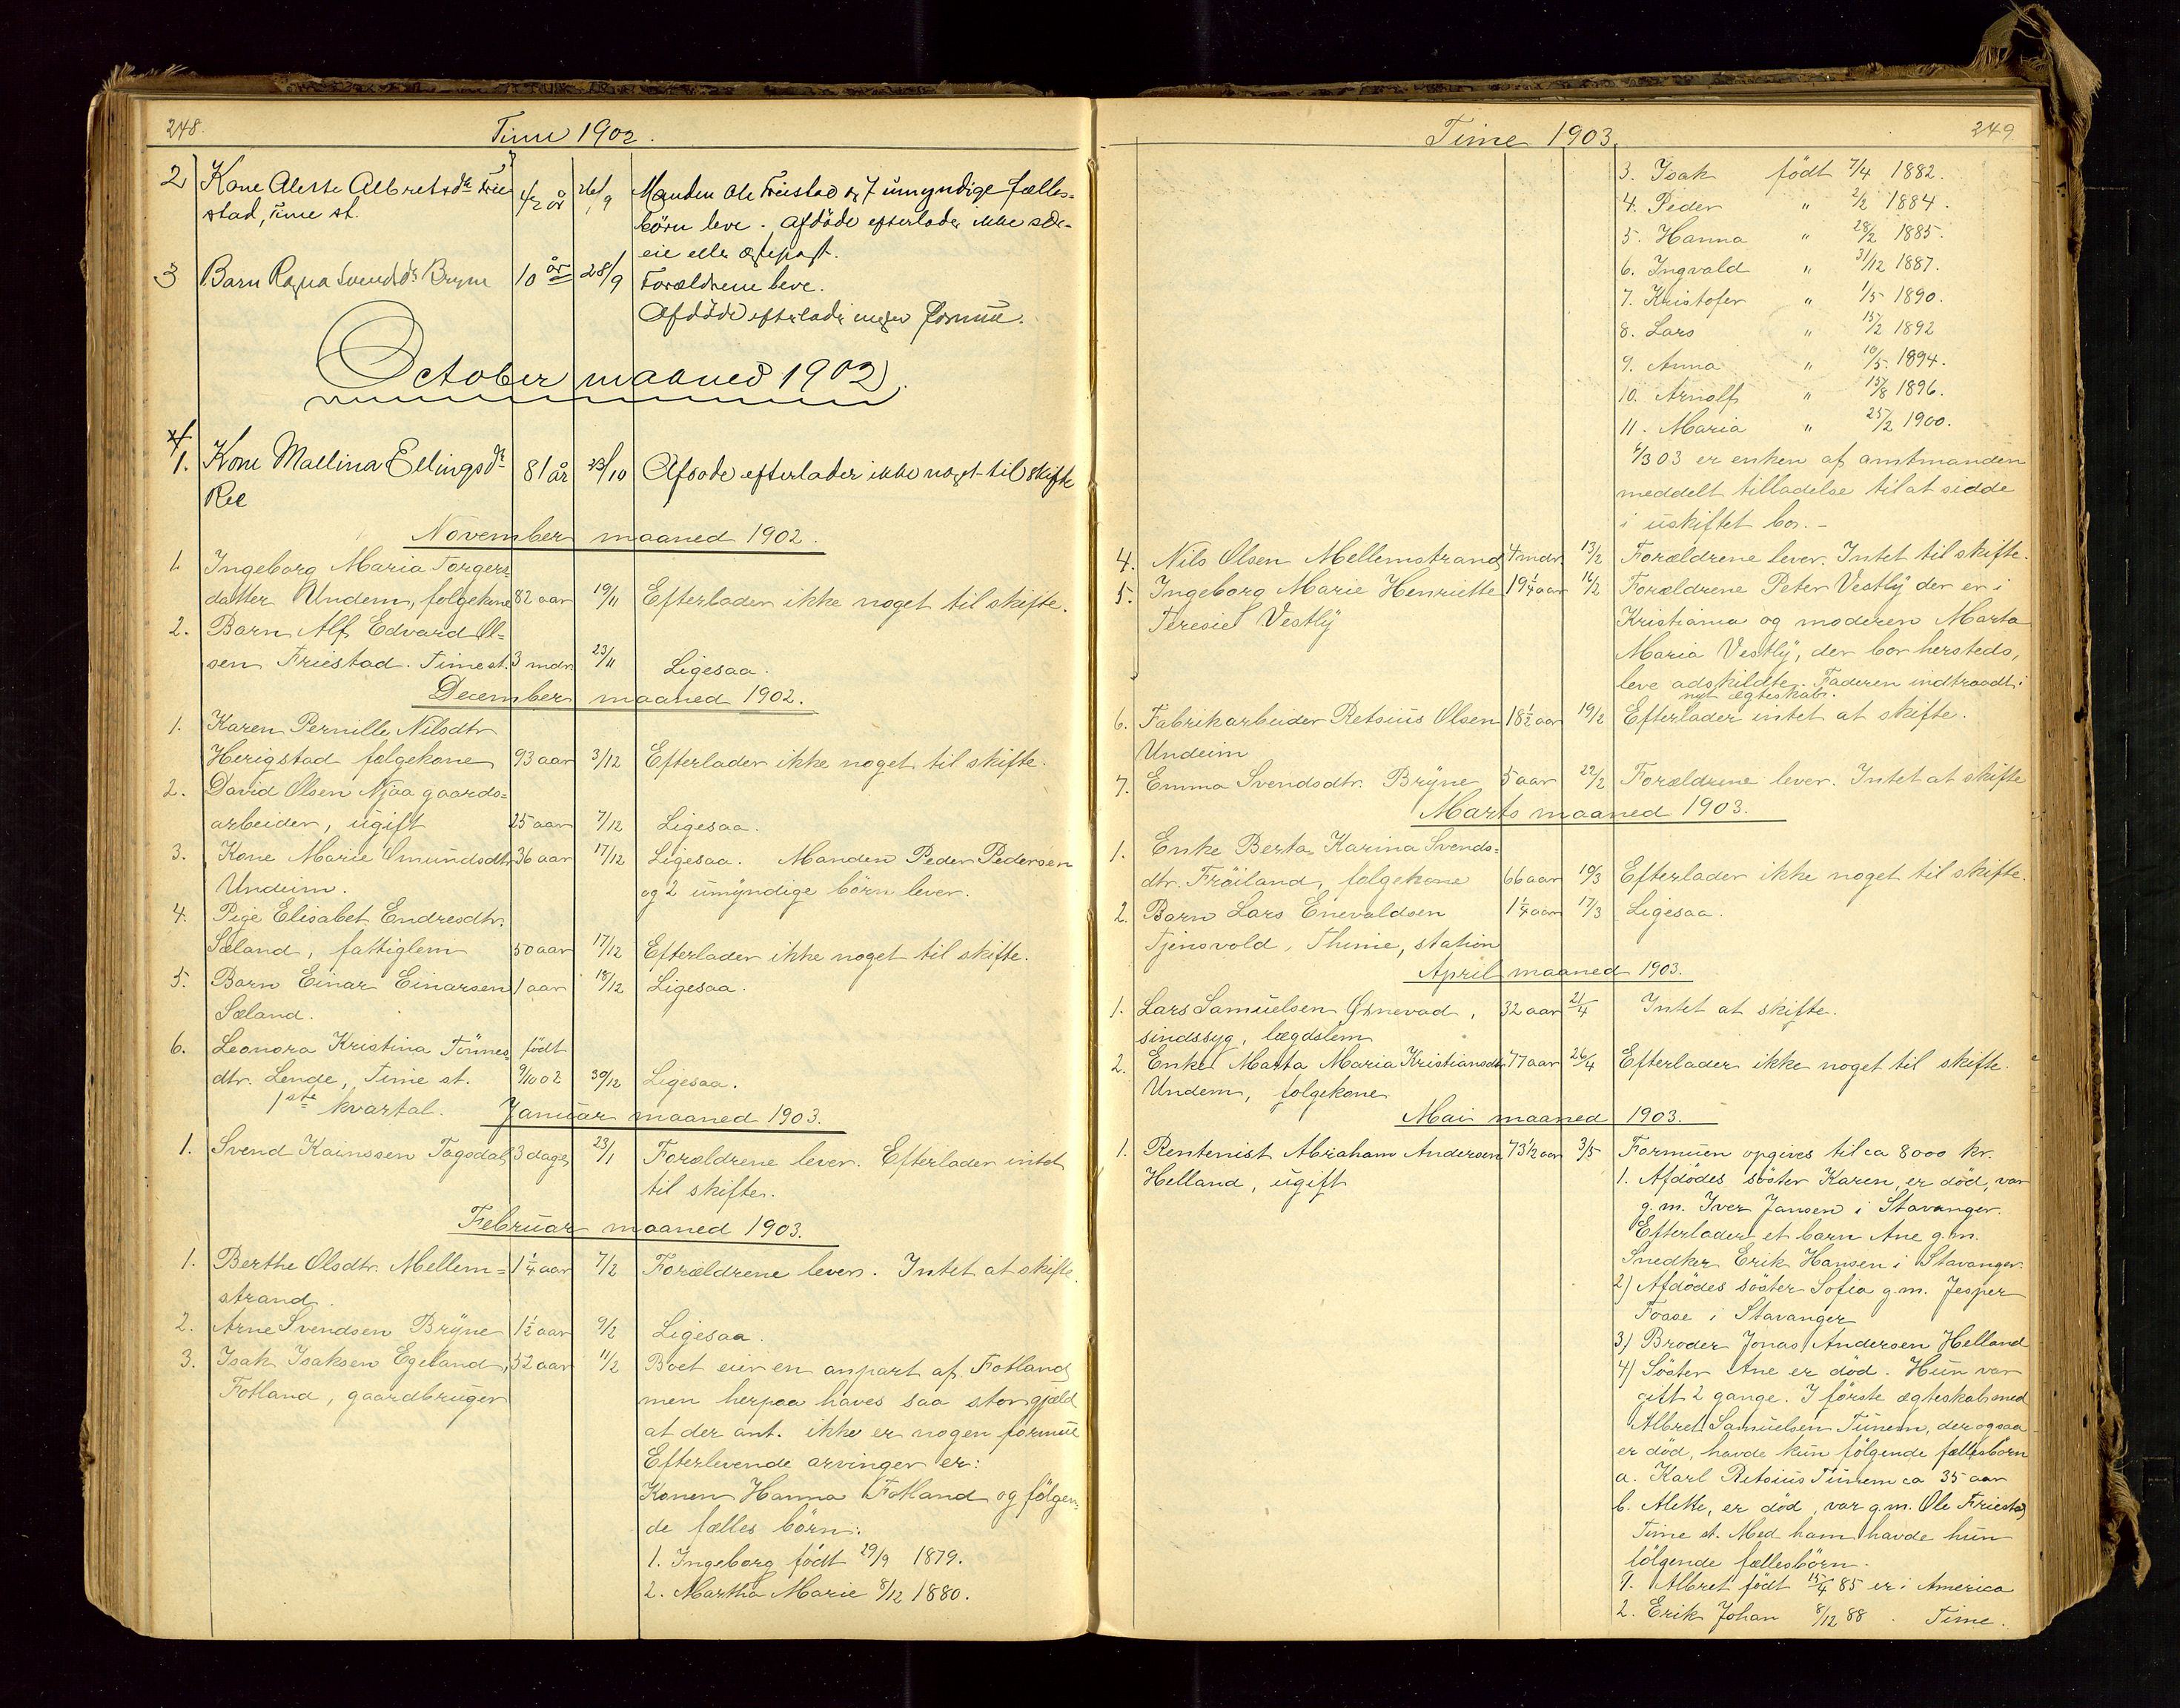 248.
Time 1902.
2 Kone Alette Albretsdr Frie
stad, Time st. 26/9 Manden Ole Friestad og 7 umyndige fælles-
börn leve. Afdöde efterlader ikke sær-
eie eller ægtepagt.
3 Barn Ragna Svendsdr Bryne 10 år 28/9 Forældrene leve.
Afdöde efterlader ingen formue.
October maaned 1902.
1. Kone Mallina Ellingsdr 81 år 23/10 Afdöde efterlader ikke noget til skifte
Ree
November maaned 1902.
1. Ingeborg Maria Torgers-
datter Undem, folgekone 82 aar 19/11 Efterlader ikke noget til skifte.
2. Barn Alf Edvard Ol=
sen Friestad. Time st. 3 mdr. 23/11 Ligesaa.
December maaned 1902.
1. Karen Pernille Nilsdtr
Herigstad folgekone 93 aar 3/12 Efterlader ikke noget til skifte.
2. David Olsen Njaa gaards=
arbeider, ugift 25 aar 7/12 Ligesaa.
3. Kone Marie Omundsdtr 36 aar 17/12 Ligesaa. Manden Peder Pedersen
Undeim. og 2 umyndige börn lever.
4. Pige Elisabet Endresdtr.
Sæland, fattiglem 50 aar 17/12 Efterlader ikke noget til skifte.
5. Barn Einar Einarsen 1 aar 18/12 Ligesaa.
Sæland.
6. Leonora Kristina Tönnes- födt
dtr. Lende, Time st. 9/10 02 30/12 Ligesaa.
1ste kvartal. Januar maaned 1903.
1. Svend Kainssen Togsdal 3 dage 23/1 Forældrene lever. Efterlader intet
til skifte.
Februar maaned 1903.
1. Berthe Olsdtr. Mellem= 1 1/4 aar 7/2 Forældrene lever. Intet at skifte.
strand.
2. Arne Svendsen Bryne 1 1/2 aar 9/2 Ligesaa.
3. Isak Isaksen Egeland, 52 aar 11/2 Boet eier en anpart af Fotland
Fotland, gaardbruger men herpaa haves saa stor gjæld
at der ant. ikke er nogen formue
Efterlevende arvinger er:
Konen Hanna Fotland og fölgen-
de fælles börn:
1. Ingeborg födt 29/9 1879.
2. Martha Marie 8/12 1880.
Time 1903.
249
3. Isak födt 7/4 1882.
4. Peder " 2/2 1884.
5. Hanna " 28/2 1885.
6. Ingvald " 31/12 1887.
7. Kristofer " 1/5 1890.
8. Lars " 15/2 1892
9. Anna " 10/5 1894.
10. Arnolf " 15/8 1896.
11. Maria " 25/2 1900.
6/3 03 er enken af amtmanden
meddelt tilladelse til at sidde
i uskiftet bo. -
4. Nils Olsen Mellemstrand 4 mdr. 13/2 Forældrene lever. Intet til skifte.
5. Ingeborg Marie Henriette 19 1/4 aar 16/2 Forældrene Peter Vestly der er i
Teresie Vestly Kristiania og moderen Marta
Maria Vestly, der bor hersteds,
leve adskildte. Faderen indtraadt i
nyt ægteskab.
6. Fabrikarbeider Retsius Olsen 18 1/2 aar 19/2 Efterlader intet at skifte.
Undeim
7. Emma Svendsdtr. Bryne 5 aar 22/2 Forældrene lever. Intet at skifte
Marts maaned 1903.
1. Enke Berta Karina Svends=
dtr. Fröiland, folgekone 66 aar 10/3 Efterlader ikke noget til skifte.
2. Barn Lars Enevaldsen 1 1/4 aar 17/3 Ligesaa.
Tjensvold, Thime, station
April maaned 1903.
1. Lars Samuelsen Örnevad, 32 aar 21/4 Intet at skifte.
sindssyg, lægdslem
2. Enke Marta Maria Kristiansdtr 77 aar 26/4 Efterlader ikke noget til skifte.
Undem, folgekone
Mai maaned 1903.
1. Rentenist Abraham Andersen 73 1/2 aar 3/5 Formuen opgives til ca 8000 kr.
Helland, ugift 1. Afdödes söster Karen er död, var
g.m. Iver Jansen i Stavanger.
Efterlader et barn Ane g.m.
Snedker Erik Hansen i Stavanger.
2) Afdödes söster Sofia g.m. Jesper
Fosse i Stavanger
3) Broder Jonas Andersen Helland
4) Söster Ane er död. Hun var
gift 2 gange. I förste ægteskab med
Albret Samuelsen Tunem, der ogsaa
er död, havde hun fölgende fællesbörn
a. Karl Retsius Tunem ca 35 aar
b. Alette, er död, var g.m. Ole Friestad
Time st. Med ham havde hun
fölgende fællesbörn.
1. Albret födt 15/4 85 er i America
2. Erik Johan 8/12 88 . Time.